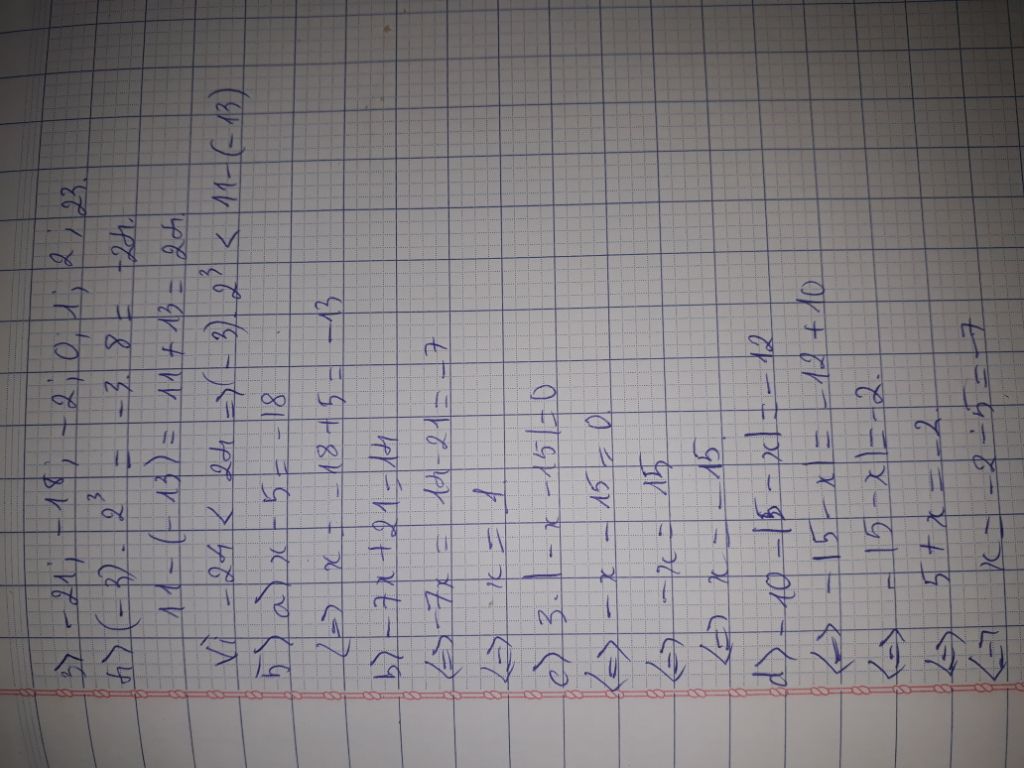 3) -21; -18; -2; 0; 1; 2; 23.
4) (-3) . 2³ = -3. 8 = -24.
11 - (-13) = 11 + 13 = 24.
Vì -24 < 24 => (-3). 2³ < 11-(-13)
5) a) x - 5 = -18
<=> x = -18 + 5 = -13
b) -7x + 21 = 14
<=> -7x = 14 - 21 = -7
<=> x = 1
c) 3.|-x - 15| = 0
<=> -x - 15 = 0
<=> -x = 15
<=> x = -15
d) -10 - |5 - x| = -12
<=> -|5 - x| = -12 + 10
<=> -|5 - x| = -2.
<=> 5 + x = -2
<=> x = -2 - 5 = -7